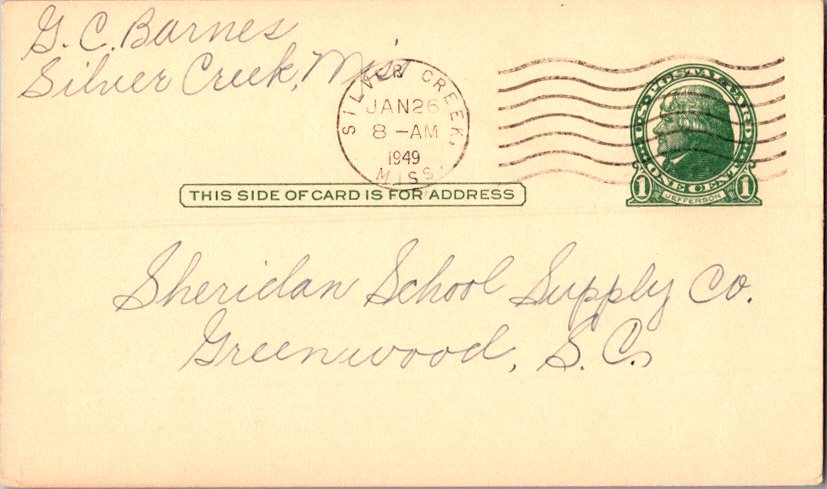 G. C. Barnes
Silver Creek, Miss
SILVER CREEK,
JAN 26
8 -AM
1949
MISS.
U.S. POSTAL CARD
ONE CENT
1 1
JEFFERSON
THIS SIDE OF CARD IS FOR ADDRESS
Sheridan School Supply Co.
Greenwood, S.C.